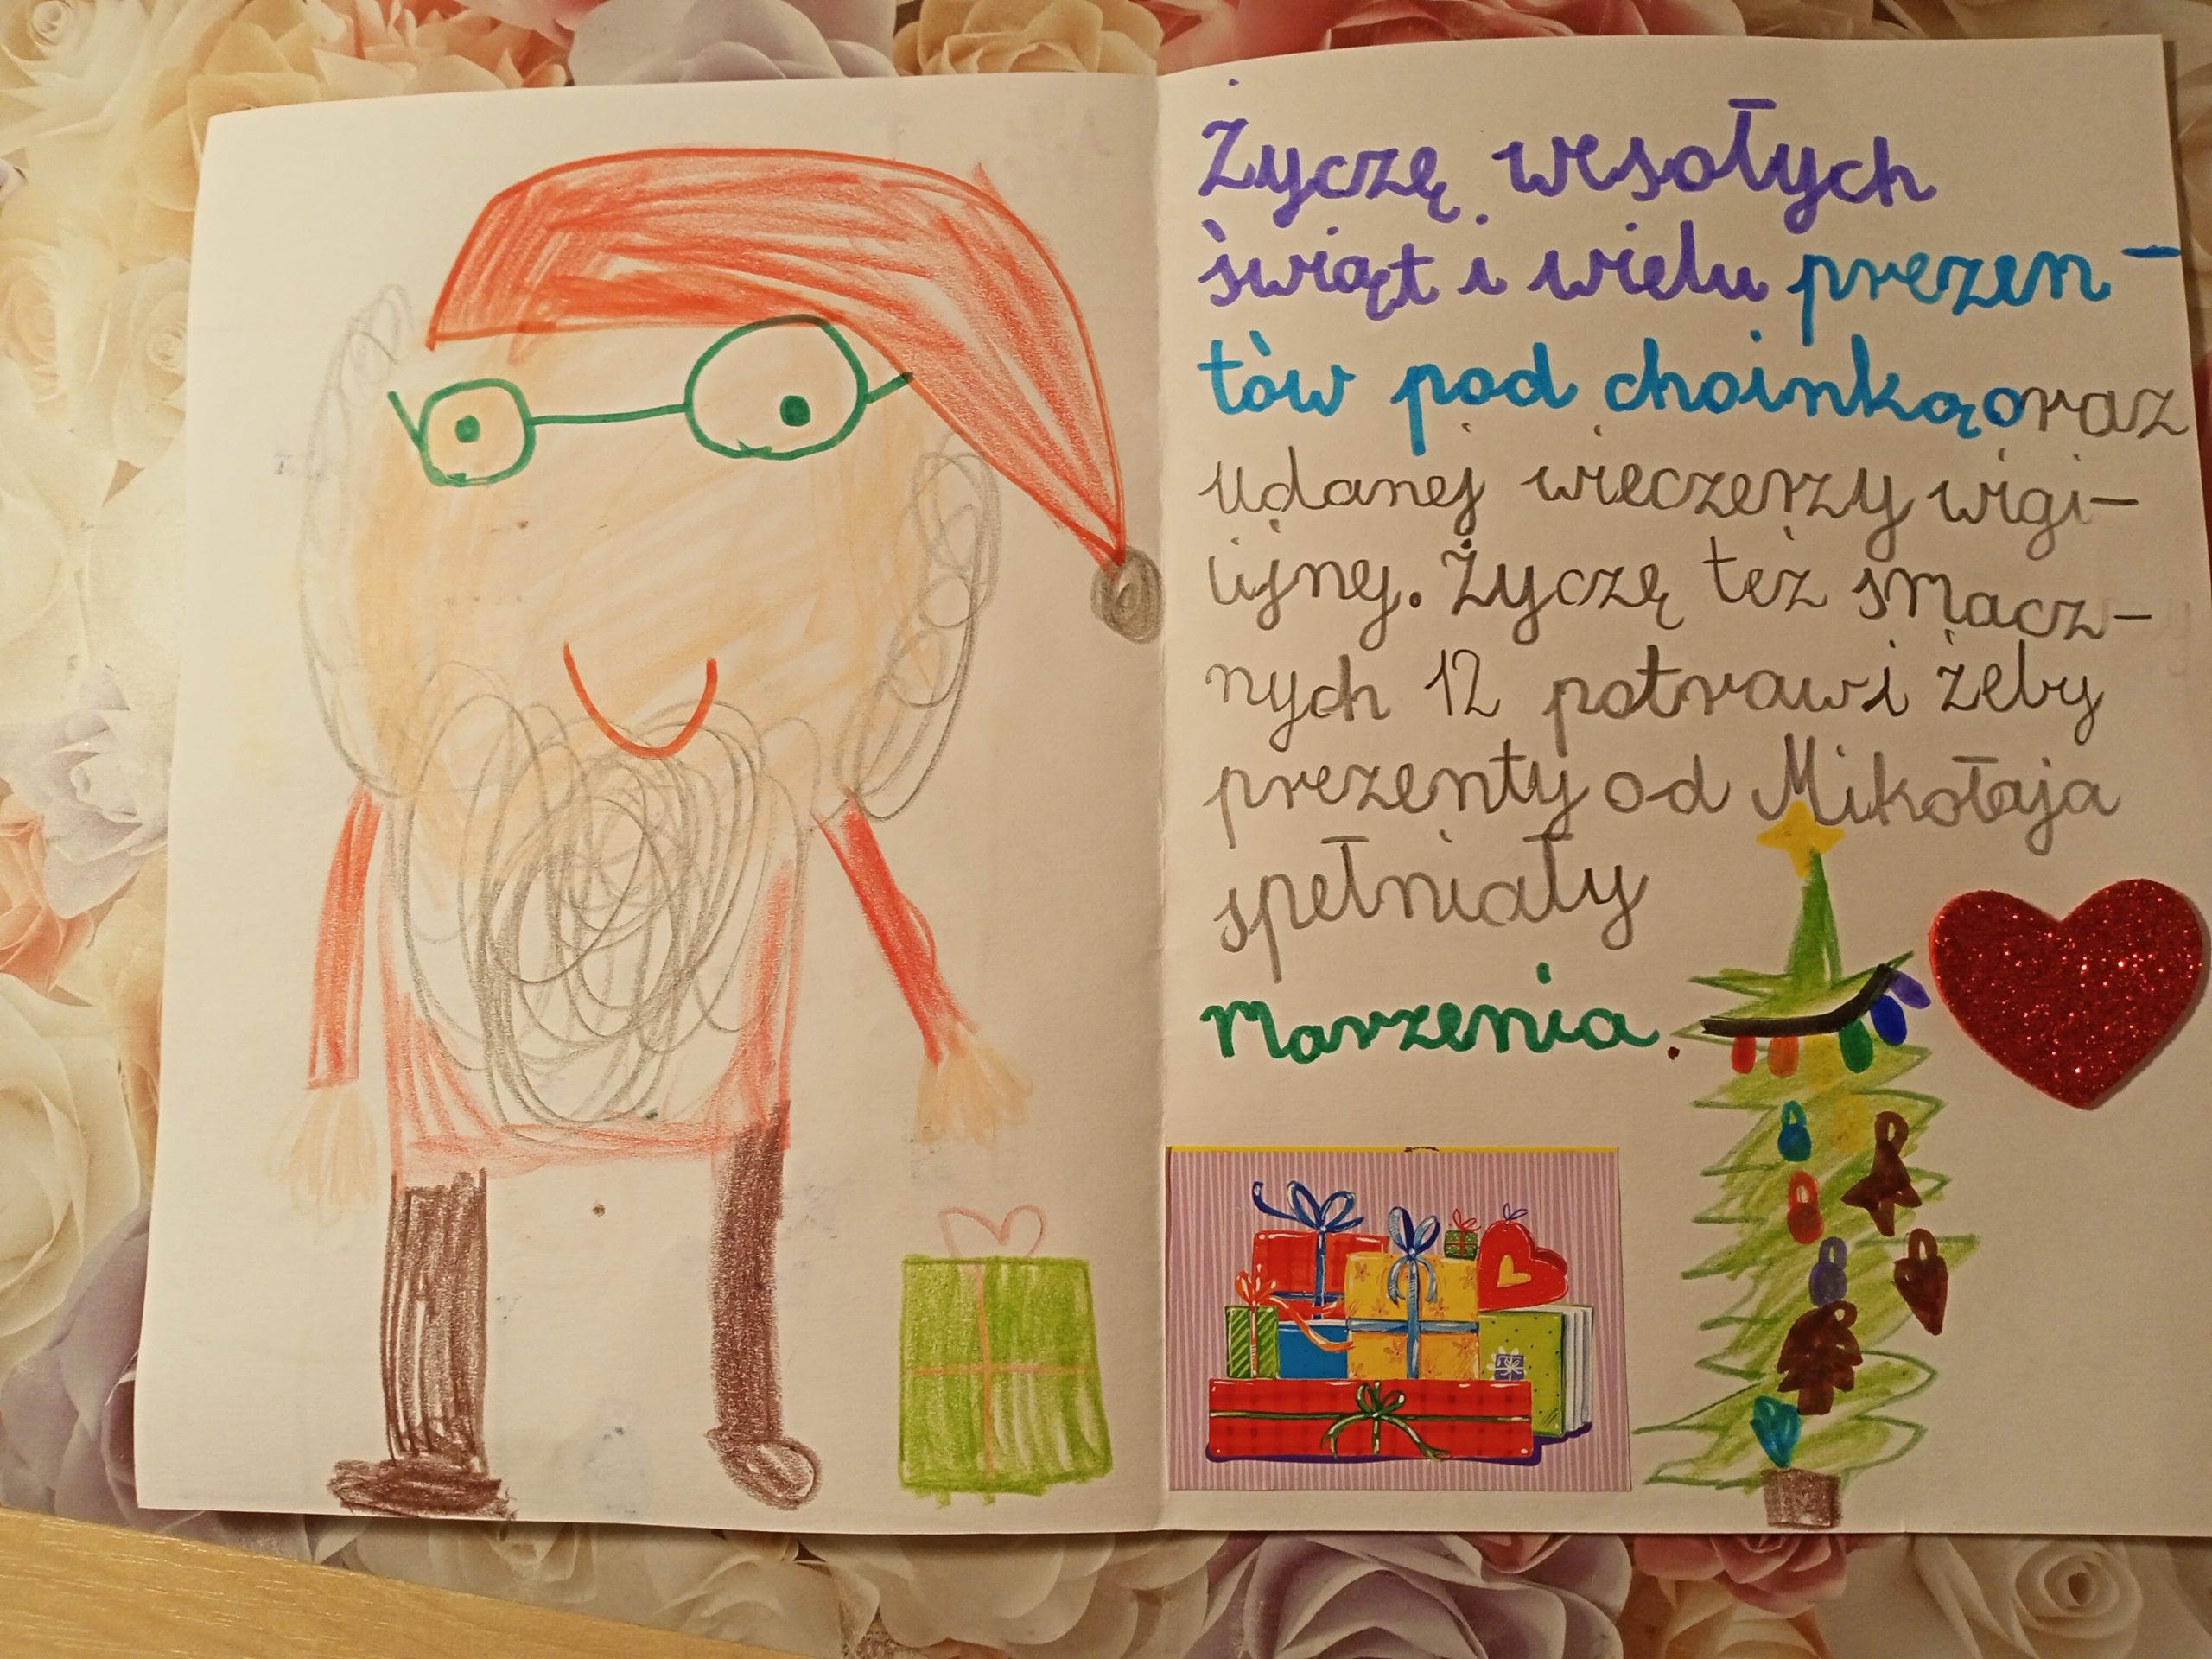 Życzę wesołych
świąt i wielu prezen-
tów pod choinką oraz
udanej wieczerzy wigi-
lijnej. Życzę też smacz-
nych 12 potraw i żeby
prezenty od Mikołaja
spełniały
marzenia.